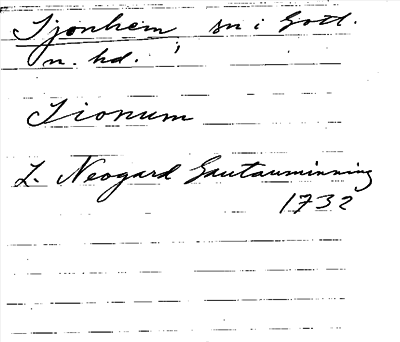 Tjonhem, sn i Gotl.
n. hd.
Tionum
L. Neogard Gautauminning
1732